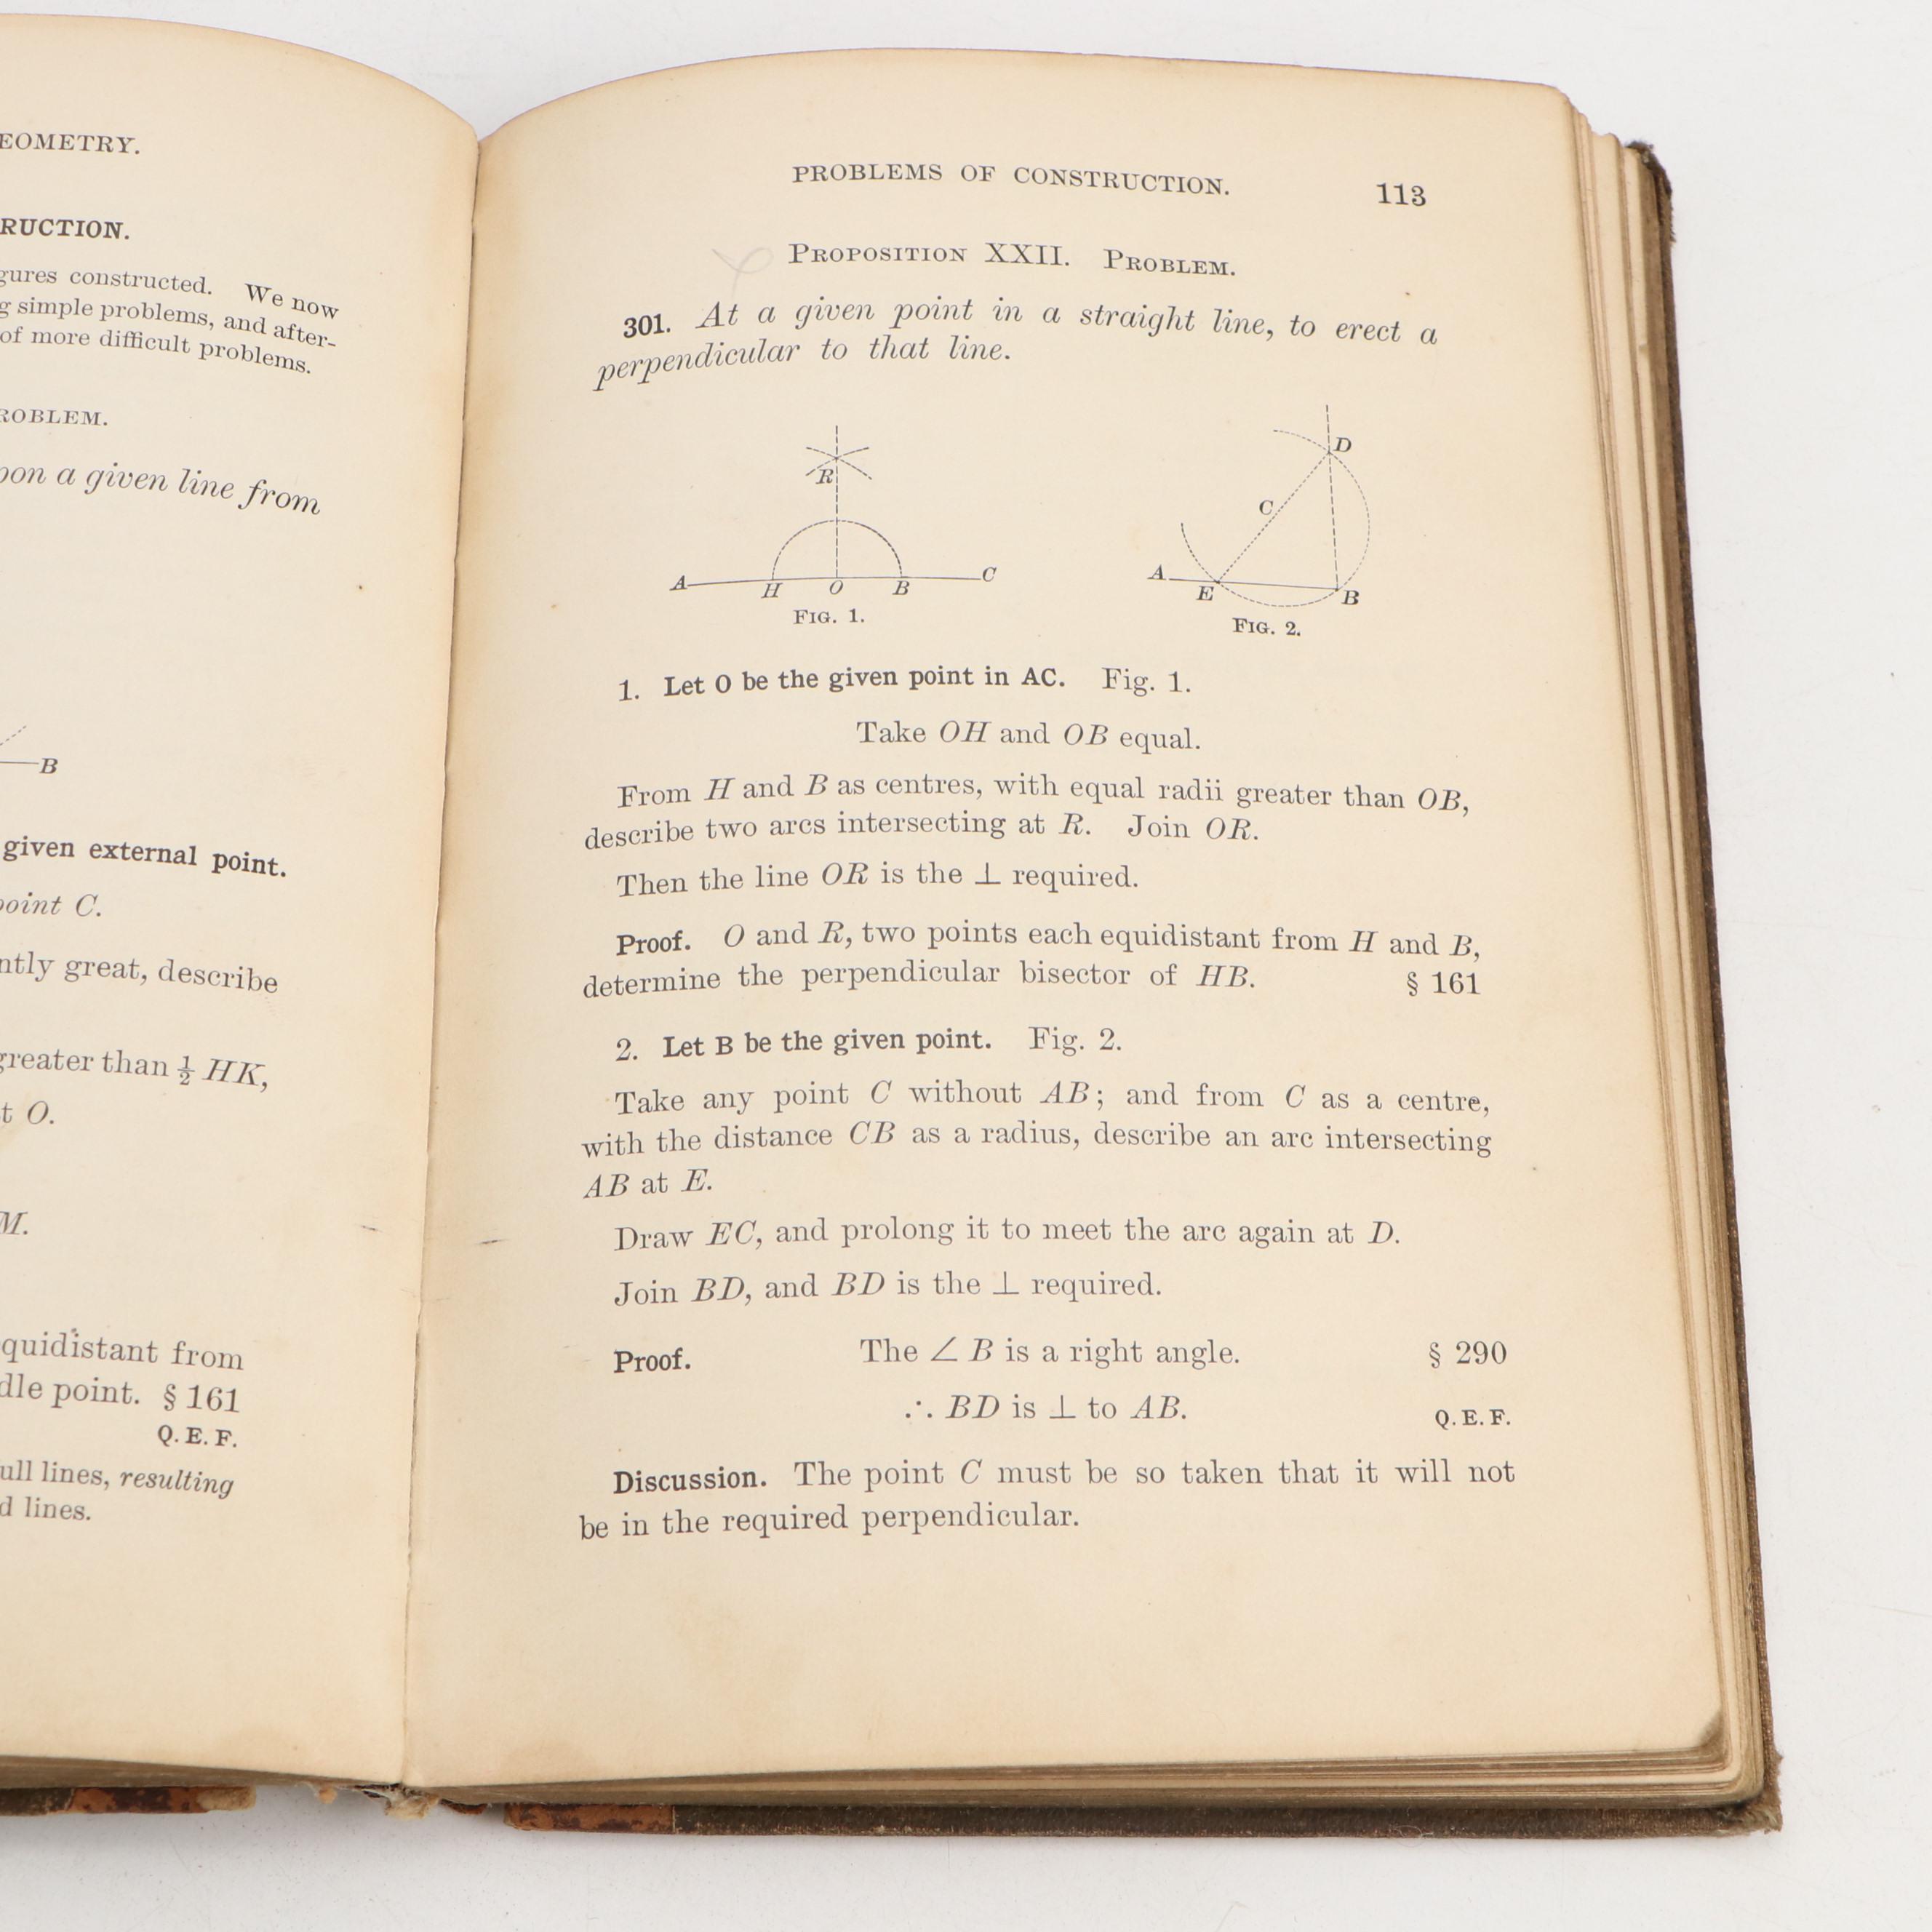 EOMETRY.
RUCTION.
gures constructed. We now
g simple problems, and after-
of more difficult problems.
ROBLEM.
pon a given line from
B
given external point.
point C.
ntly great, describe
greater than ½ HK,
t O.
M.
quidistant from
dle point. § 161
Q.E.F.
ull lines, resulting
d lines.
PROBLEMS OF CONSTRUCTION. 113
PROPOSITION XXII. PROBLEM.
301. At a given point in a straight line, to erect a
perpendicular to that line.
R
A H O B C
FIG. 1.
D
C
A E B
FIG. 2.
1. Let O be the given point in AC. Fig. 1.
Take OH and OB equal.
From H and B as centres, with equal radii greater than OB,
describe two arcs intersecting at R. Join OR.
Then the line OR is the ⊥ required.
Proof. O and R, two points each equidistant from H and B,
determine the perpendicular bisector of HB. § 161
2. Let B be the given point. Fig. 2.
Take any point C without AB; and from C as a centre,
with the distance CB as a radius, describe an arc intersecting
AB at E.
Draw EC, and prolong it to meet the arc again at D.
Join BD, and BD is the ⊥ required.
Proof. The ∠ B is a right angle. § 290
∴ BD is ⊥ to AB. Q.E.F.
Discussion. The point C must be so taken that it will not
be in the required perpendicular.